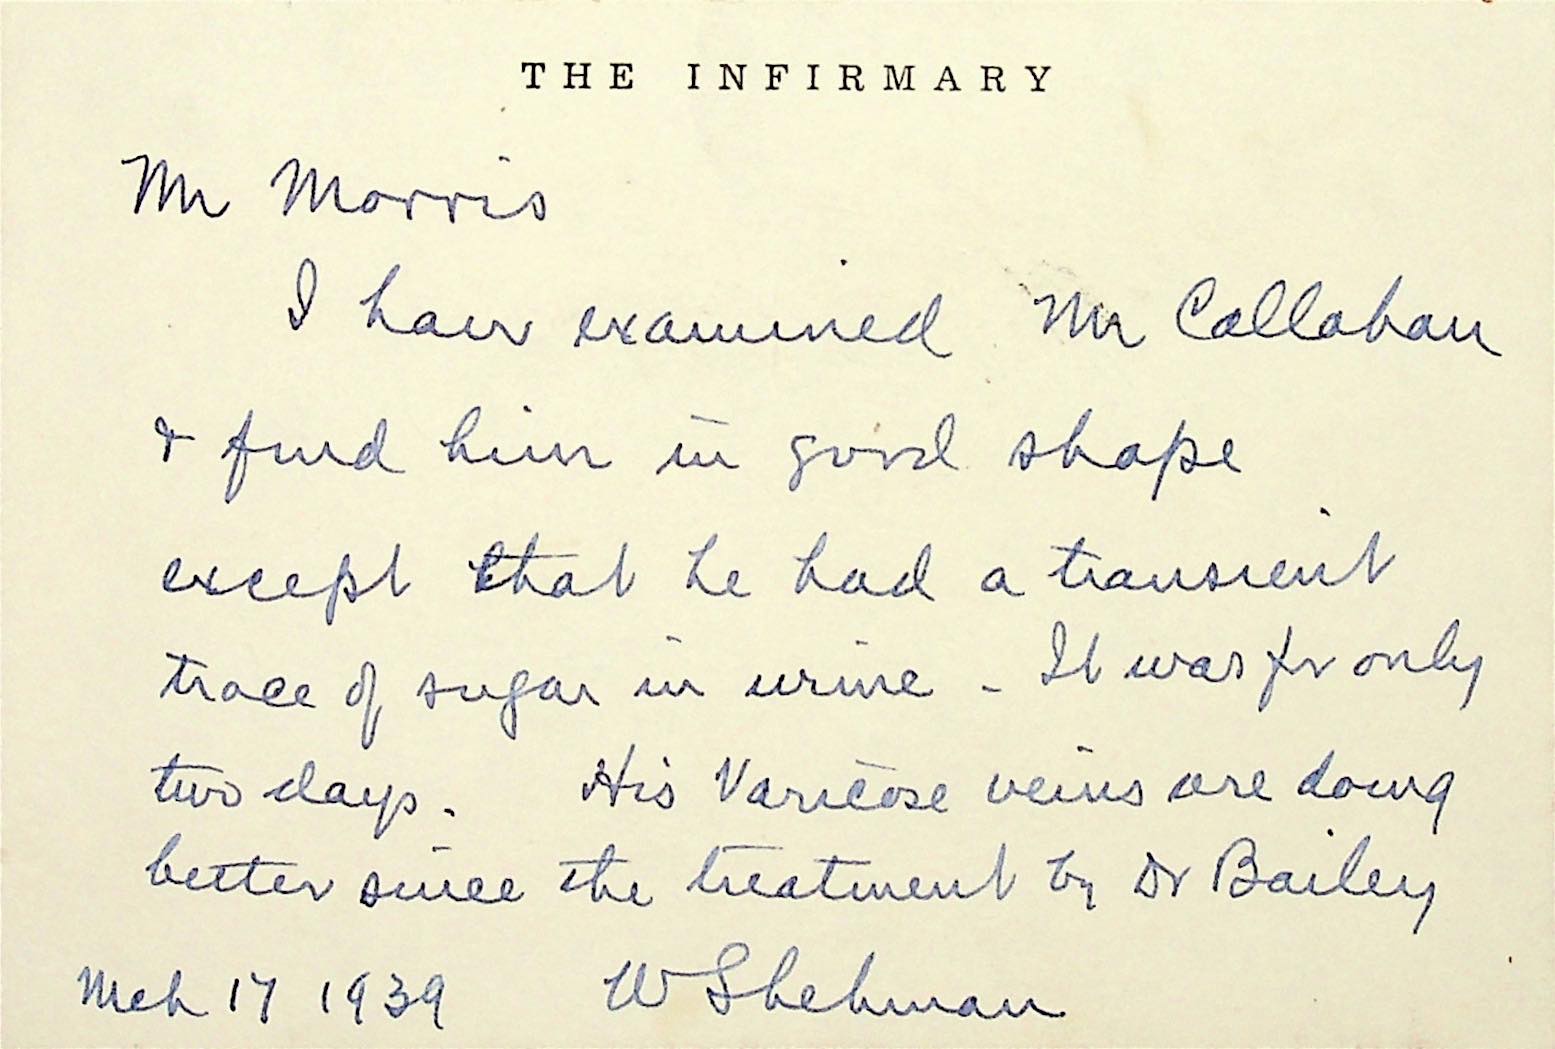 THE INFIRMARY
Mr Morris
I have examined Mr Callahan
& find him in good shape
except that he had a transient
trace of sugar in urine - It was for only
two days. His Varicose veins are doing
better since the treatment by Dr Bailey
Mch 17 1939 W